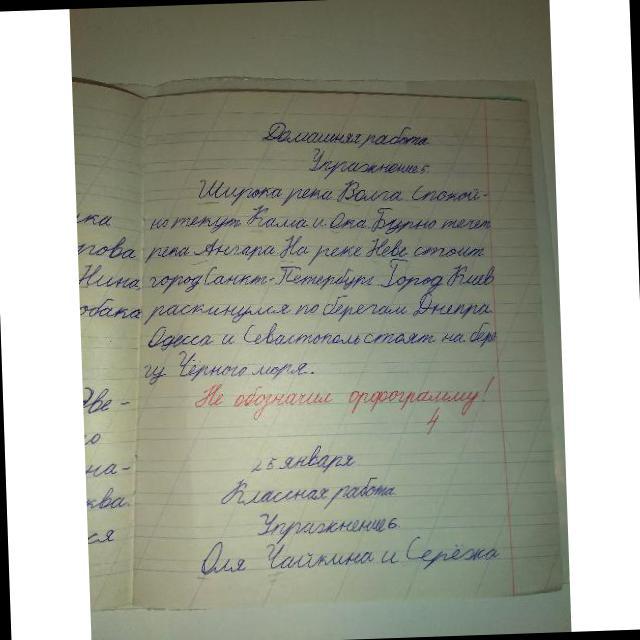 Домашняя работа
Упражнение 5.
Широка река Волга. Спокой-
но текут Кама и Ока. Бурно течет
река Ангара. На реке Неве стоит
город Санкт-Петербург. Город Киев
раскинулся по берегам Днепра.
Одесса и Севастополь стоят на бере
гу Чёрного моря.
Не обозначил орфограмму!
4
25 января
Классная работа
Упражнение 6.
Оля Чайкина и Серёжа
ка
Нина
обака
Две-
на-
ква.
ся